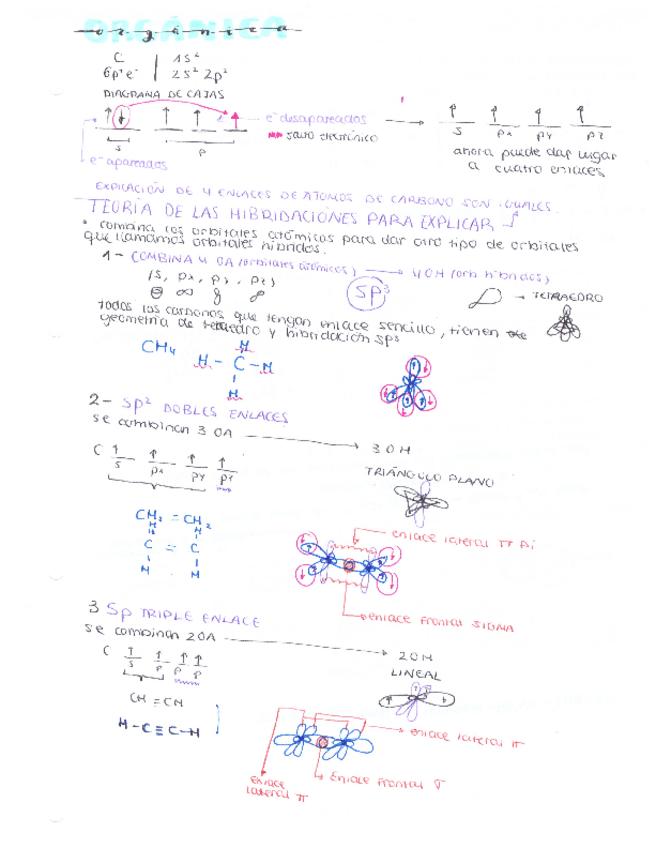 ORGÁNICA
C | 1s²
6p⁺e⁻ | 2s² 2p²
DIAGRAMA DE CAJAS
e⁻ desapareados
salto electrónico
s
p
e⁻ apareados
s px py pz
ahora puede dar lugar
a cuatro enlaces
EXPLICACIÓN DE 4 ENLACES DE ÁTOMOS DE CARBONO SON IGUALES
TEORÍA DE LAS HIBRIDACIONES PARA EXPLICAR
* combina los orbitales atómicos para dar otro tipo de orbitales
que llamamos orbitales híbridos.
1 - COMBINA 4 OA (orbitales atómicos) → 4 OH (orb híbridos)
(s, px, py, pz)
sp³
→ TETRAEDRO
todos los carbonos que tengan enlace sencillo, tienen
geometría de tetraedro y hibridación sp³
CH4
H
H - C - H
H
2- sp² DOBLES ENLACES
se combinan 3 OA → 3 OH
C
s px py py
TRIÁNGULO PLANO
CH2 = CH2
H H
C = C
H H
enlace lateral π Pi
enlace frontal SIGMA
3 Sp TRIPLE ENLACE
se combinan 2OA → 2OH
C
s p p p
LINEAL
CH ≡ CH
H - C ≡ C - H
enlace lateral π
enlace frontal σ
enlace
lateral π